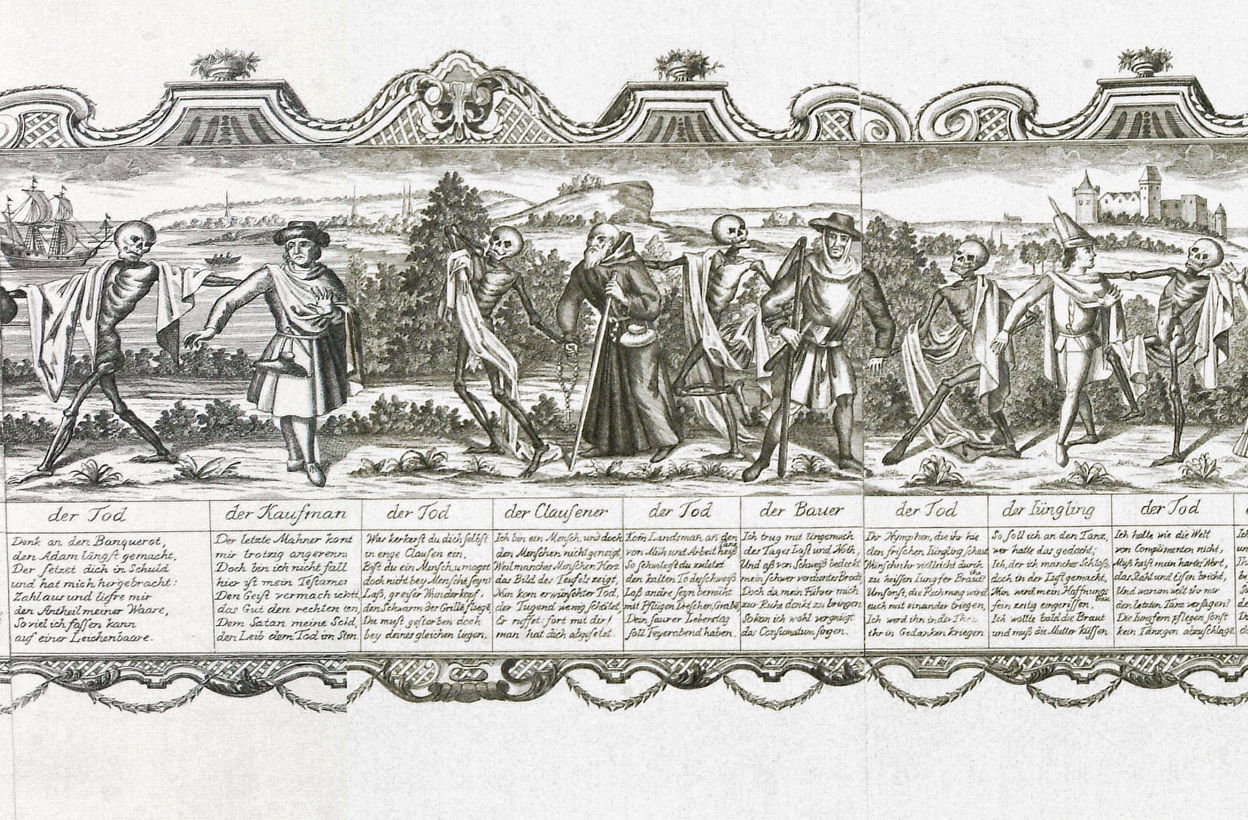 der Tod
Denk an den Banquerot,
den Adam längst gemacht,
Der setzet dich in Schuld
und hat mich hergebracht:
Zahl aus und liefre mir
den Antheil meiner Waare,
So viel ich fassen kann
auf einer Leichenbaare.
der Kaufman
Der letzte Mahner komt
mir trotzig angerenn
Doch bin ich nicht fall
hier ist mein Testamen
Den Geist vermach
das Gut den rechten
Dem Satan meine Scid
den Leib dem Tod im
der Tod
Was kerkerst du dich selbst
in enge Clausen ein,
Bist du ein Mensch, u. magst
doch nicht bey Menschen seyn?
Laß, greiser Wunderkopf,
den Schwarm der Grille fliegē
Du must gestorben doch
bey deines gleichen liegen.
der Clausener
Ich bin ein Mensch, und doch
den Menschen nicht geneigt,
Weil mancher Menschen Herz
das Bild des Teufels zeigt,
Nun kom erwünschter Tod,
der Tugend wenig schätzet
Er ruffet: fort mit dir!
man hat dich abgesetzt.
der Tod
Kom Landsman an den Tanz
von Müh und Arbeit heiß
So schwitzest du zuletzt
den kalten Todesschweiß
Laß andre seyn bemüht
mit Pflügen Dreschen, Grabē
Dein saurer Lebenstag
soll Feyerabend haben.
der Bauer
Ich trug mit Ungemach
des Tages Last und Noth,
Und aß von Schweiß bedeckt
mein schwer verdientes Brodt
Doch da mein Führer mich
zur Ruhe denkt zu bringen
So kan ich wohl vergnügt
das Consumatum singen.
der Tod
Ihr Nymphen, die ihr hie
den frischen Jüngling schaut
Wünscht ihr vielleicht durch ihn
zu heissen Jungfer Braut?
Umsonst, die Rechnung wird
euch mit einander triegen,
Ich werd ihn in der
ihr in Gedanken kriegen
der Jüngling
So soll ich an den Tanz,
wer hatte das gedacht;
Ich, der ich manches Schloß,
doch in der Luft gemacht,
Nun werd mein Hoffnungs Bau
fein zeitig eingerissen,
Ich wollte bald die Braut
und muß die Mutter küssen
der Tod
Ich halte wie die Welt
von Complimenten nicht,
Muß heist mein hartes Wort,
das Stahl und Eisen bricht,
Und warum wolt ihr mir
den letzten Tanz versagen?
Die Jungfern pflegen sonst
kein Tänzgen abzuschlage